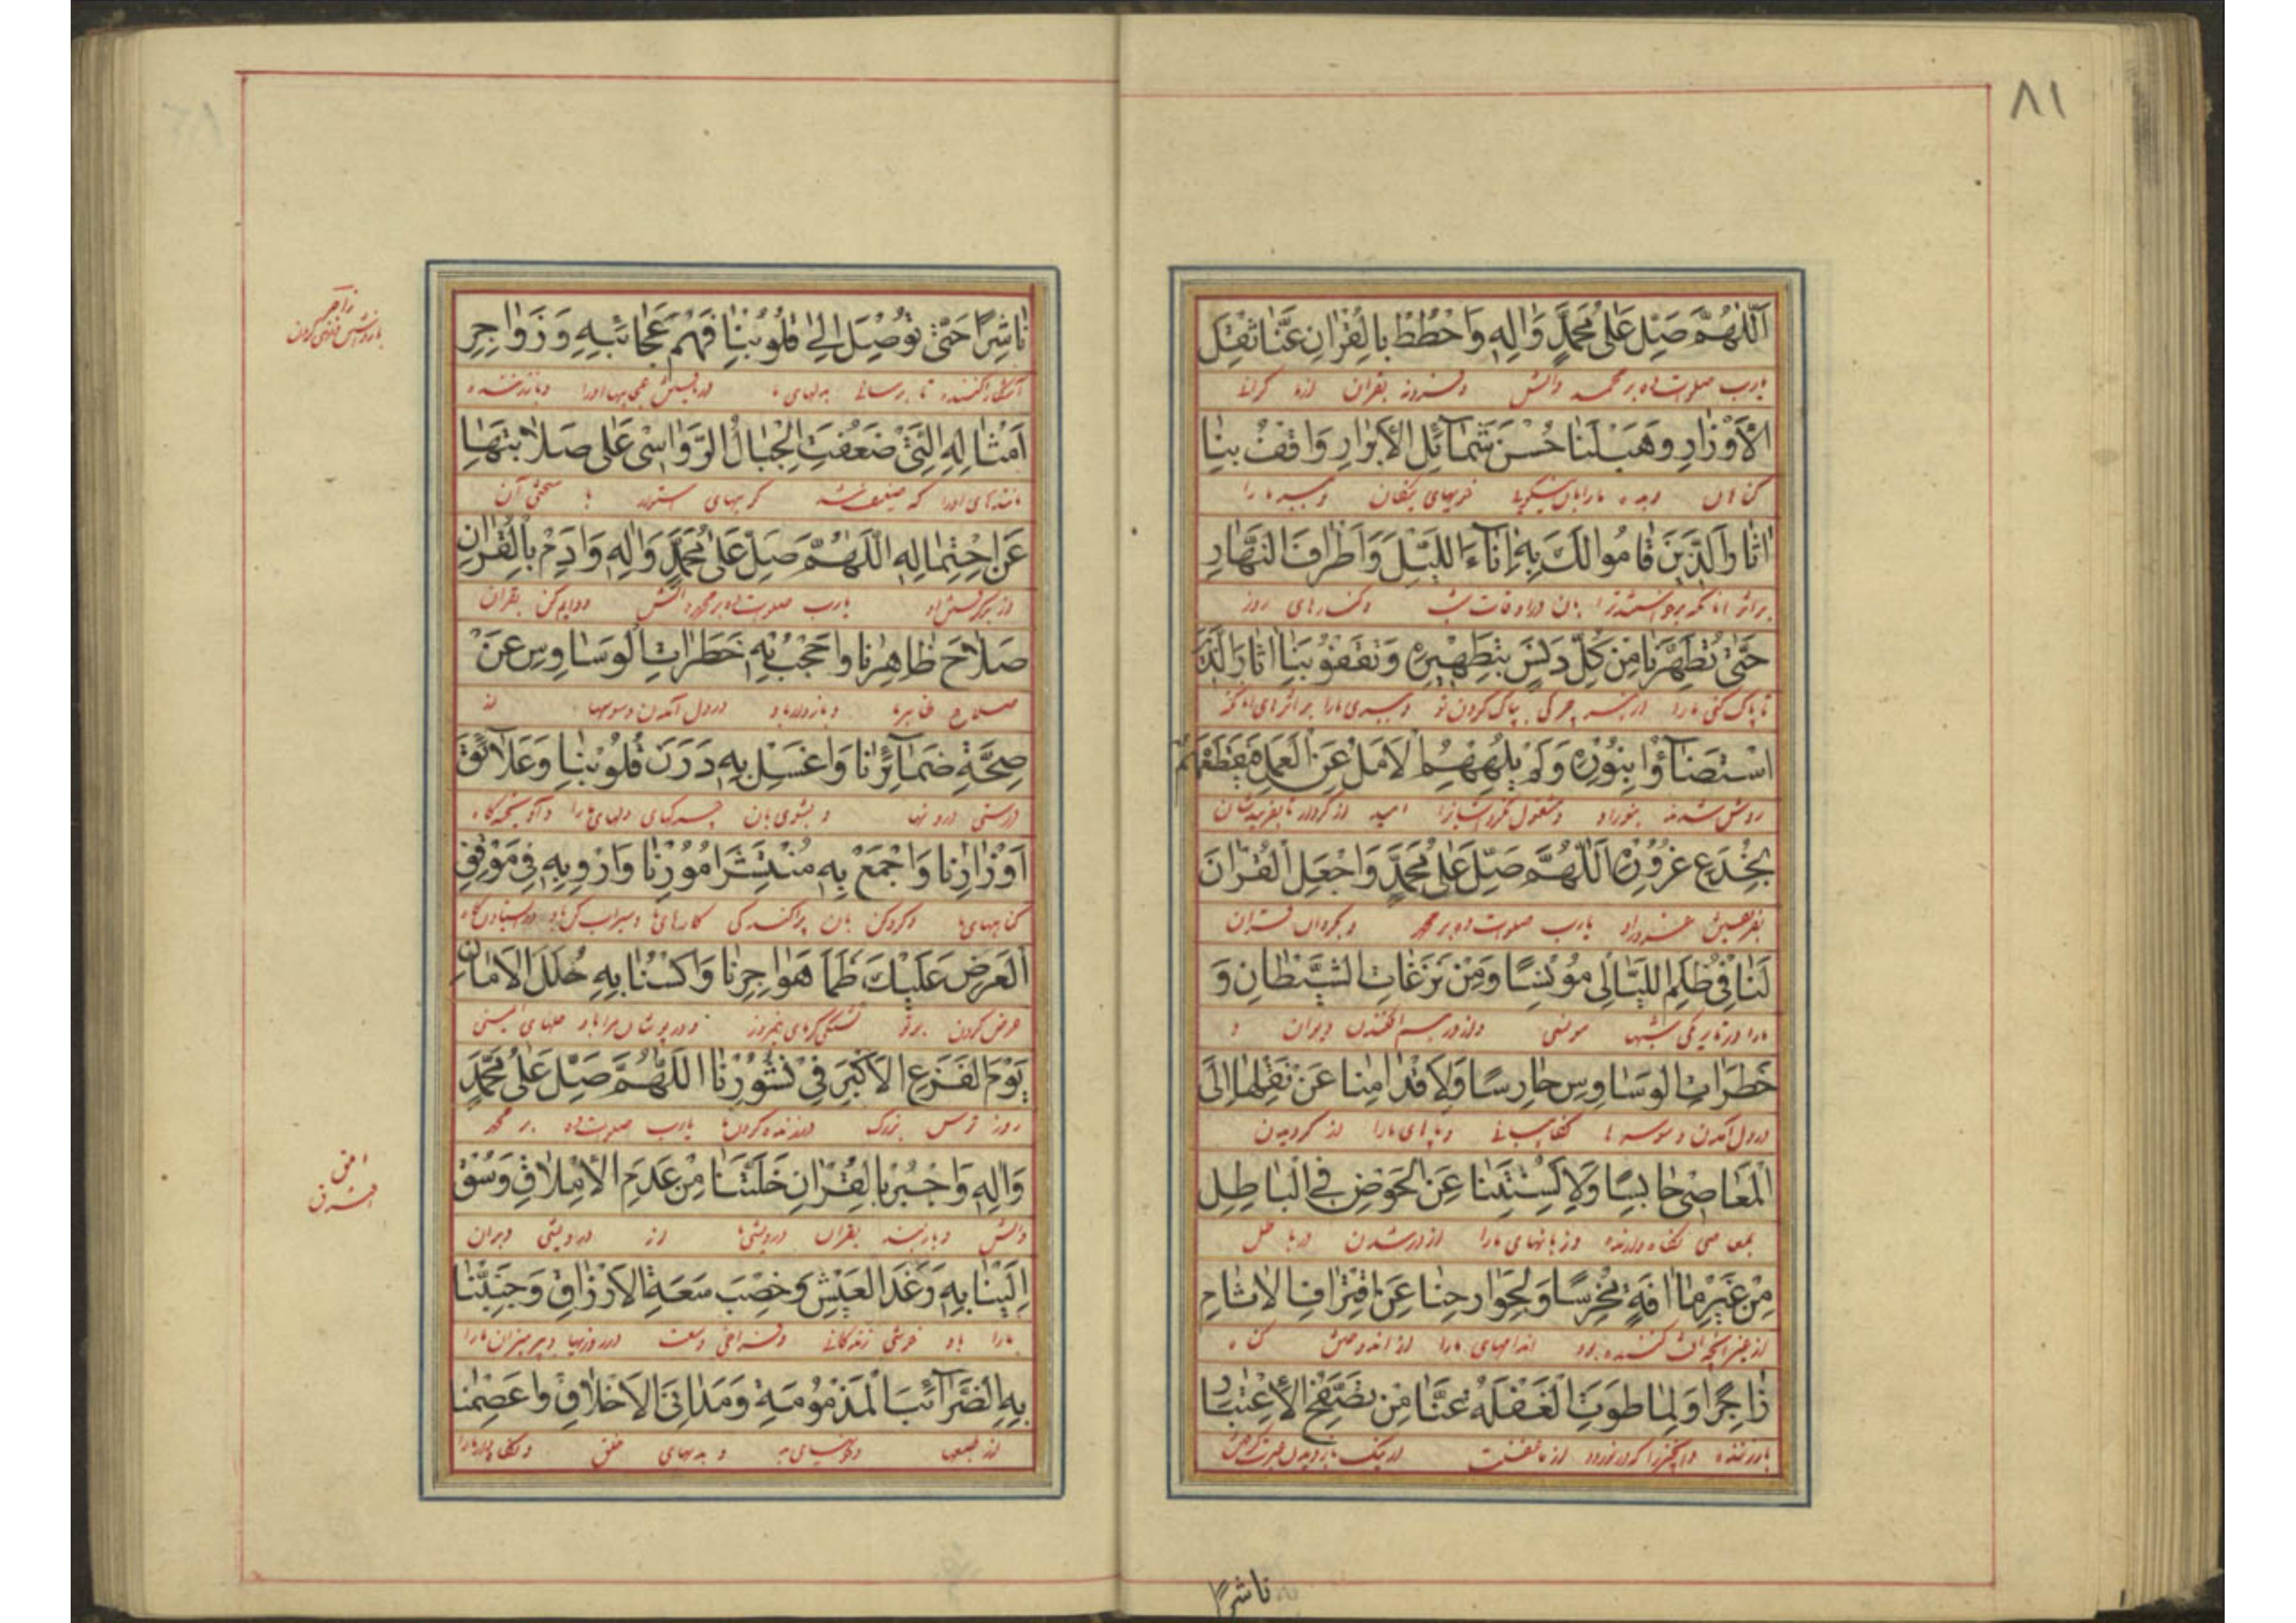 ٨١
اَللّٰهُمَّ صَلِّ عَلٰى مُحَمَّدٍ وَاٰلِهِ وَاحْطُطْ بِالْقُرْاٰنِ عَنَّا ثِقْلَ
یارب صلوات ده بر محمد والش و فرود نه بقران از ما کرانے
الْاَوْزَارِ وَهَبْ لَنَا حُسْنَ شَمَآئِلِ الْاَبْرَارِ وَاقْفُ بِنَا
کناهان و بده ما را بان نیکویے خویهای نیکان و ببر ما را
اٰثَارَ الَّذِينَ قَامُوا لَكَ بِهِ اٰنَآءَ اللَّيْلِ وَاَطْرَافَ النَّهَارِ
بر اثر انانکه بان در اوقات شب و کنارهای روز
حَتّٰى تُطَهِّرَنَا مِنْ كُلِّ دَنَسٍ بِتَطْهِيرِهِ وَتَقْفُوَ بِنَا اٰثَارَ الَّذِينَ
تا پاک کنی ما را از هر چرکی بپاک کردن تو و ببری ما را بر اثرهای انانکه
اسْتَضَآؤُا بِنُورِهِ وَلَمْ يُلْهِهِمُ الْاَمَلُ عَنِ الْعَمَلِ فَيَقْطَعَهُمْ
روشن شدند بنور او و مشغول نکرد ایشانرا امید از کردار تا بفریبدشان
بِخُدَعِ غُرُورِهِ اَللّٰهُمَّ صَلِّ عَلٰى مُحَمَّدٍ وَاجْعَلِ الْقُرْاٰنَ
یارب صلوات ده بر محمد و بکردان قران
لَنَا فِي ظُلَمِ اللَّيَالِي مُونِسًا وَمِنْ نَزَغَاتِ الشَّيْطَانِ وَ
ما را در تاریکی شبها مونسی و از در هم افکندن دیوان و
خَطَرَاتِ الْوَسَاوِسِ حَارِسًا وَلِاَقْدَامِنَا عَنْ نَقْلِهَا اِلَى
در دل آمدن وسوسه ها نکاهبانے و پاهای ما را از کردیدن
الْمَعَاصِي حَابِسًا وَلِاَلْسِنَتِنَا عَنِ الْخَوْضِ فِي الْبَاطِلِ
بمعاصی نکاه دارنده و زبانهای ما را از در شدن در باطل
مِنْ غَيْرِ مَا اٰفَةٍ مُخْرِسًا وَلِجَوَارِحِنَا عَنِ اقْتِرَافِ الْاٰثَامِ
از غیر آفت کننده بود اندامهای ما را از اندوختن کناه
زَاجِرًا وَلِمَا طَوَتِ الْغَفْلَةُ عَنَّا مِنْ تَصَفُّحِ الْاِعْتِبَارِ
ناشرًا
نَاشِرًا حَتّٰى تُوصِلَ اِلٰى قُلُوبِنَا فَهْمَ عَجَائِبِهِ وَزَوَاجِرِ
آشکارا کننده تا برسانے بدلهای ما دریافتن عجایبها او را و بازدارنده
اَمْثَالِهِ الَّتِي ضَعُفَتِ الْجِبَالُ الرَّوَاسِي عَلٰى صَلَابَتِهَا
مانندهای او را که ضعیف شد کوههای استوار با سختی آن
عَنِ احْتِمَالِهِ اَللّٰهُمَّ صَلِّ عَلٰى مُحَمَّدٍ وَاٰلِهِ وَاَدِمْ بِالْقُرْاٰنِ
از برداشتن او یارب صلوات ده بر محمد والش و دایم کن بقران
صَلَاحَ ظَاهِرِنَا وَاحْجُبْ بِهِ خَطَرَاتِ الْوَسَاوِسِ عَنْ
صلاح ظاهر ما و بازدار باو در دل آمدن وسوسها از
صِحَّةِ ضَمَآئِرِنَا وَاغْسِلْ بِهِ دَرَنَ قُلُوبِنَا وَعَلَآئِقَ
درستی درونها و بشوی بان چرکهای دلهای ما را و آویختکاه
اَوْزَارِنَا وَاجْمَعْ بِهِ مُنْتَشَرَ اُمُورِنَا وَارْوِ بِهِ فِي مَوْقِفِ
کناههای ما و کرد کن بان پراکندکی کارهای ما و سیراب کن باو در ایستادن کاه
الْعَرْضِ عَلَيْكَ ظَمَأَ هَوَاجِرِنَا وَاكْسُنَا بِهِ حُلَلَ الْاَمَانِ
عرض کردن بر تو تشنکی کرمای نیمروز و در پوشان ما را باو حلهای ایمنی
يَوْمَ الْفَزَعِ الْاَكْبَرِ فِي نُشُورِنَا اَللّٰهُمَّ صَلِّ عَلٰى مُحَمَّدٍ
روز ترس بزرک در زنده کردن ما یارب صلوات ده بر محمد
وَاٰلِهِ وَاجْبُرْ بِالْقُرْاٰنِ خَلَّتَنَا مِنْ عَدَمِ الْاِمْلَاقِ وَسُقْ
والش و باز بند بقران درویشی ما از درویشی و بران
اِلَيْنَا بِهِ رَغَدَ الْعَيْشِ وَخِصْبَ سَعَةِ الْاَرْزَاقِ وَجَنِّبْنَا
ما را باو خوشی زندکانے و فراخی وسعت در روزیها و بپرهیزان ما را
بِهِ الضَّرَآئِبَ الْمَذْمُومَةَ وَمَدَانِيَ الْاَخْلَاقِ وَاعْصِمْنَا
از طبعها و بدیهای خلق و نکاه دار ما را